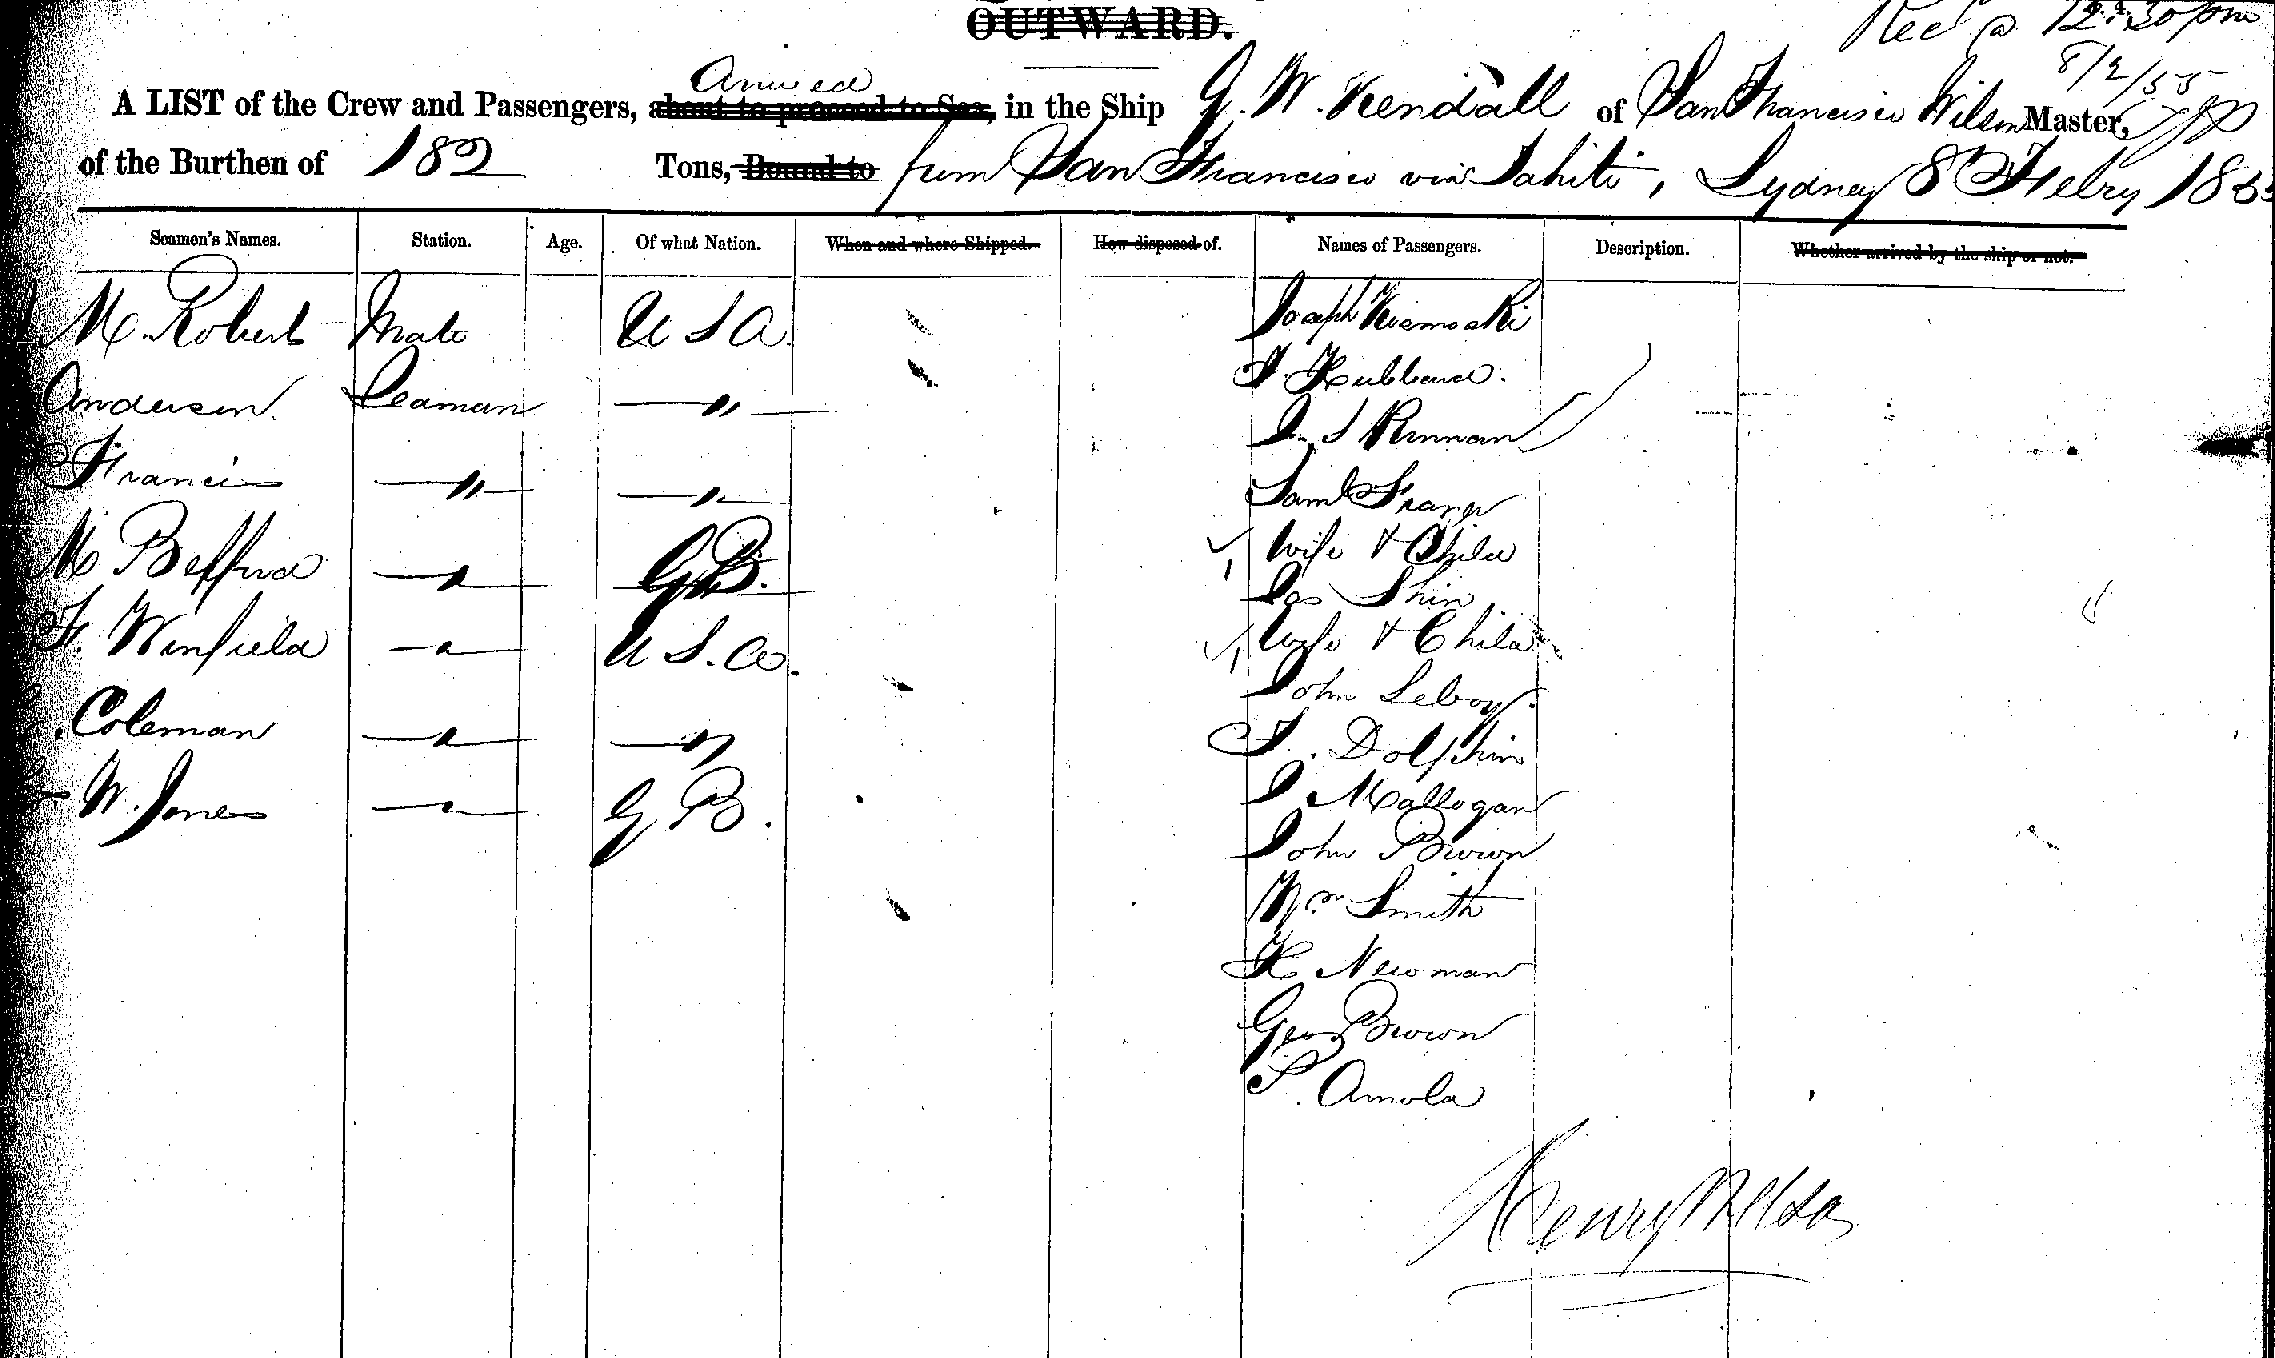 OUTWARD.
Recd @ 12.30 pm
8/2/55
Arrived
A LIST of the Crew and Passengers, about to proceed to Sea, in the Ship G. W. Kendall of San Francisco Wilson Master,
of the Burthen of 182 Tons, Bound to from San Francisco via Tahiti, Sydney 8th Febry 1855
Seamen's Names. Station. Age. Of what Nation. When and where Shipped. How disposed of. Names of Passengers. Description. Whether arrived by the ship or not.
M. Robert Mate U S A. Joseph
Anderson. Seaman — " — Hubbard.
Francis — " — — " — Saml
M G.B. Wife & Child
F. Winfield — " — U. S. A. Jas Shin
Coleman — " — — " — Wife & Child
W. Jones — " — G B. John
Dolphin
John Brown
Wm Smith
H Newman
Geo Brown
Amola
Henry Wilson